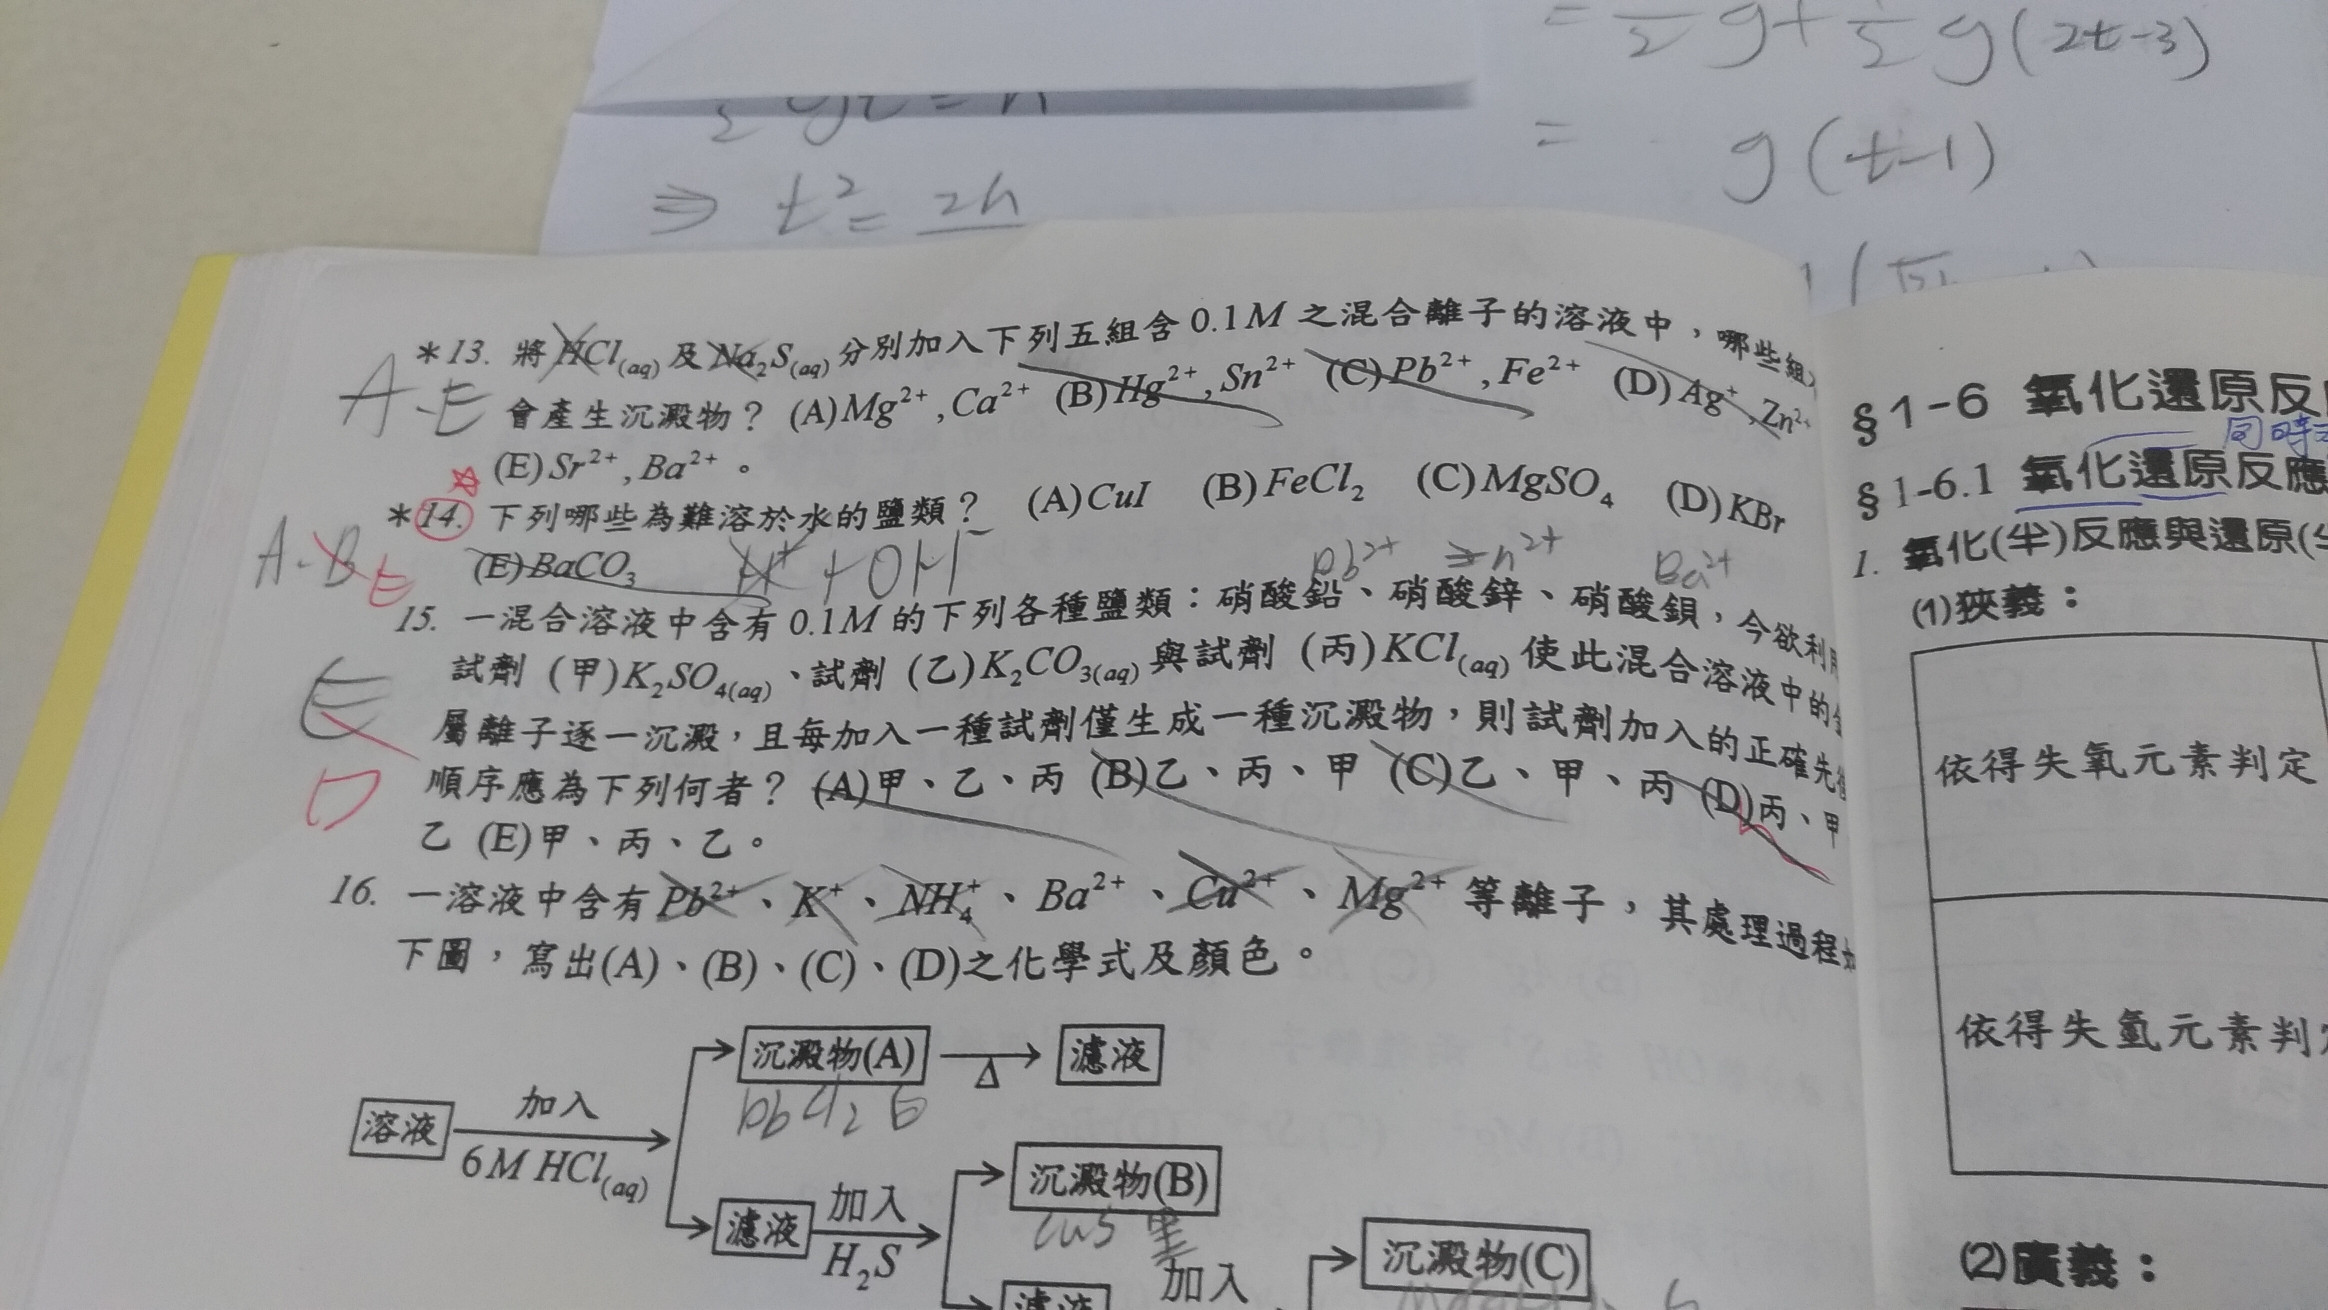 = 1/2 g + 1/2 g(2t-3)
= g(t-1)
⇒ t² = 2h
*13. 將HCl(aq)及Na₂S(aq)分別加入下列五組含0.1M之混合離子的溶液中，哪些組
A.E
會產生沉澱物？ (A)Mg²⁺,Ca²⁺ (B)Hg²⁺,Sn²⁺ (C)Pb²⁺,Fe²⁺ (D)Ag⁺,Zn²⁺
(E)Sr²⁺,Ba²⁺。
*14. 下列哪些為難溶於水的鹽類？ (A)CuI (B)FeCl₂ (C)MgSO₄ (D)KBr
A.B E
(E)BaCO₃
H⁺ + OH⁻
Pb²⁺ Zn²⁺ Ba²⁺
15. 一混合溶液中含有0.1M的下列各種鹽類：硝酸鉛、硝酸鋅、硝酸鋇，今欲利用
試劑 (甲)K₂SO₄(aq)、試劑 (乙)K₂CO₃(aq)與試劑 (丙)KCl(aq) 使此混合溶液中的金
E
屬離子逐一沉澱，且每加入一種試劑僅生成一種沉澱物，則試劑加入的正確先後
D
順序應為下列何者？ (A)甲、乙、丙 (B)乙、丙、甲 (C)乙、甲、丙 (D)丙、甲
乙 (E)甲、丙、乙。
16. 一溶液中含有Pb²⁺、K⁺、NH₄⁺、Ba²⁺、Cu²⁺、Mg²⁺等離子，其處理過程如
下圖，寫出(A)、(B)、(C)、(D)之化學式及顏色。
溶液
加入
6M HCl(aq)
沉澱物(A)
Δ
濾液
PbCl₂ 白
濾液
加入
H₂S
沉澱物(B)
CuS 黑
濾液
加入
沉澱物(C)
§1-6 氧化還原反
同時
§1-6.1 氧化還原反應
1. 氧化(半)反應與還原(半
(1)狹義：
依得失氧元素判定
依得失氫元素判定
(2)廣義：